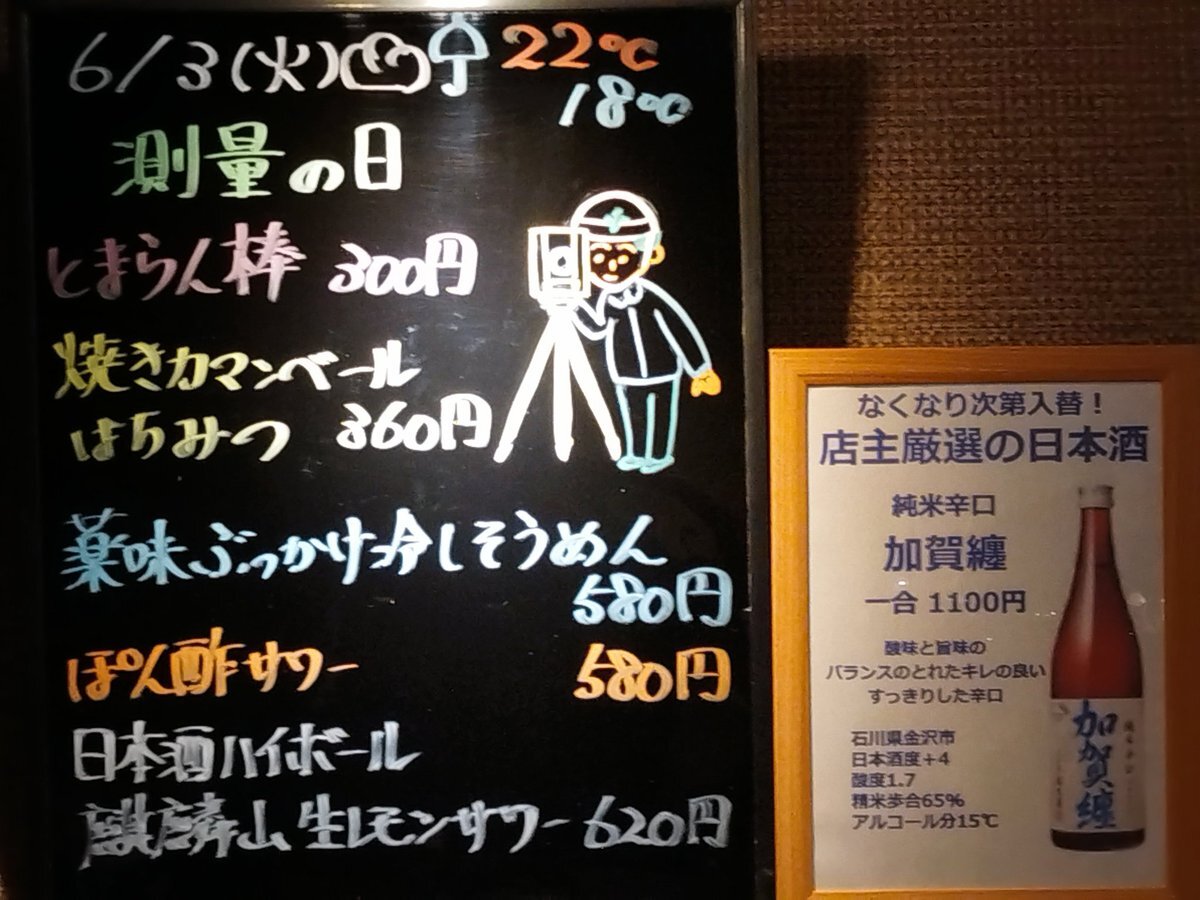 6/3(火) 22℃
18℃
測量の日
とまらん棒 300円
焼きカマンベール
はちみつ 360円
薬味ぶっかけ冷しそうめん
580円
ぽん酢サワー 580円
日本酒ハイボール
麒麟山生レモンサワー 620円
なくなり次第入替！
店主厳選の日本酒
純米辛口
加賀纏
一合 1100円
酸味と旨味の
バランスのとれたキレの良い
すっきりした辛口
石川県金沢市
日本酒度＋4
酸度1.7
精米歩合65%
アルコール分15℃
加賀纏